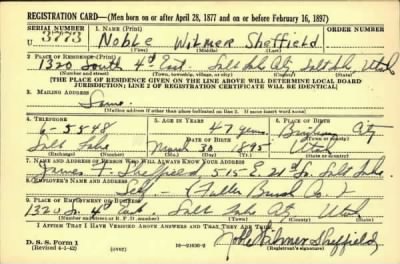 REGISTRATION CARD—(Men born on or after April 28, 1877 and on or before February 16, 1897)
SERIAL NUMBER 1. NAME (Print)
U 3773 Noble Wilmer Sheffield
(First) (Middle) (Last)
2. PLACE OF RESIDENCE (Print)
1320 South 4th East. Salt Lake City Salt Lake Utah
(Number and street) (Town, township, village, or city) (County) (State)
[THE PLACE OF RESIDENCE GIVEN ON THE LINE ABOVE WILL DETERMINE LOCAL BOARD
JURISDICTION; LINE 2 OF REGISTRATION CERTIFICATE WILL BE IDENTICAL]
3. MAILING ADDRESS
Same.
[Mailing address if other than place indicated on line 2. If same insert word same]
4. TELEPHONE 5. AGE IN YEARS 6. PLACE OF BIRTH
6-5548 47 years. Brigham City
DATE OF BIRTH
Salt Lake March 30 1895 Utah
(Exchange) (Number) (Mo.) (Day) (Yr.) (State or country)
7. NAME AND ADDRESS OF PERSON WHO WILL ALWAYS KNOW YOUR ADDRESS
James F. Sheffield, 515 E. 21st So. Salt Lake.
8. EMPLOYER'S NAME AND ADDRESS
Self - (Fuller Brush Co.)
9. PLACE OF EMPLOYMENT OR BUSINESS
1320 So. 4th East Salt Lake City Utah
(Number and street or R. F. D. number) (Town) (County) (State)
I AFFIRM THAT I HAVE VERIFIED ABOVE ANSWERS AND THAT THEY ARE TRUE.
D. S. S. Form 1
(Revised 4-1-42) (over) 16—21630-2 Noble Wilmer Sheffield
(Registrant's signature)